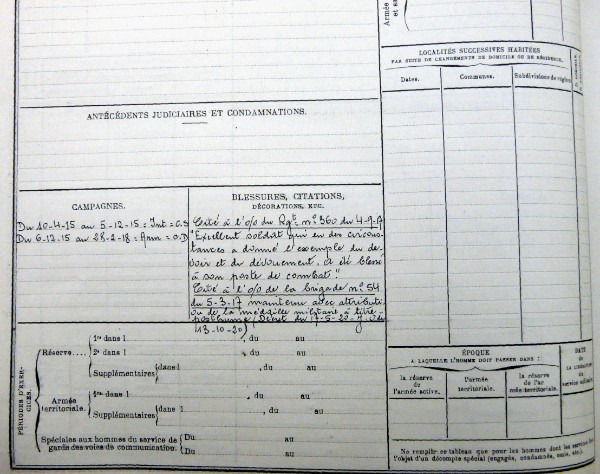 Armée
et sa
LOCALITÉS SUCCESSIVES HABITÉES
PAR SUITE DE CHANGEMENTS DE DOMICILE OU DE RÉSIDENCE.
Dates.
Communes.
Subdivisions de région
ANTÉCÉDENTS JUDICIAIRES ET CONDAMNATIONS.
CAMPAGNES.
Du 10-4-15 au 5-12-15 : Int = C.S
Du 6-12-15 au 28-2-18 : Arm =
BLESSURES, CITATIONS,
DÉCORATIONS, ETC.
Cité à l'o/o du Rgt n° 360 du 4-9-17
"Excellent soldat qui en des circons-
tances a donné l'exemple du de-
voir et du dévouement. A été blessé
à son poste de combat."
Cité à l'o/o de la brigade n° 54
du 5-3-17 maintenu avec attributi
on de la médaille militaire à titre
posthume (Décret du 17-5-20 - J.O du
13-10-20)
PÉRIODES D'EXER-
CICES.
Réserve....
1re dans l , du au
2e dans l , du au
Supplémentaires dans l , du au
Armée
territoriale.
1re dans l , du au
Supplémentaires dans l , du au
Spéciales aux hommes du service de
garde des voies de communication.
Du au
Du au
ÉPOQUE
A LAQUELLE L'HOMME DOIT PASSER DANS :
la réserve
de l'armée active.
l'armée
territoriale.
la réserve
de l'ar
mée territoriale.
DATE
de
service militaire
Ne remplir ce tableau que pour les hommes dont les services
l'objet d'un décompte spécial (engagés, condamnés, omis, etc.).